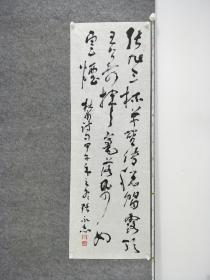 張旭三杯草聖傳脫帽露頂
王公前揮毫落紙如
雲煙 杜甫詩句甲午年之冬